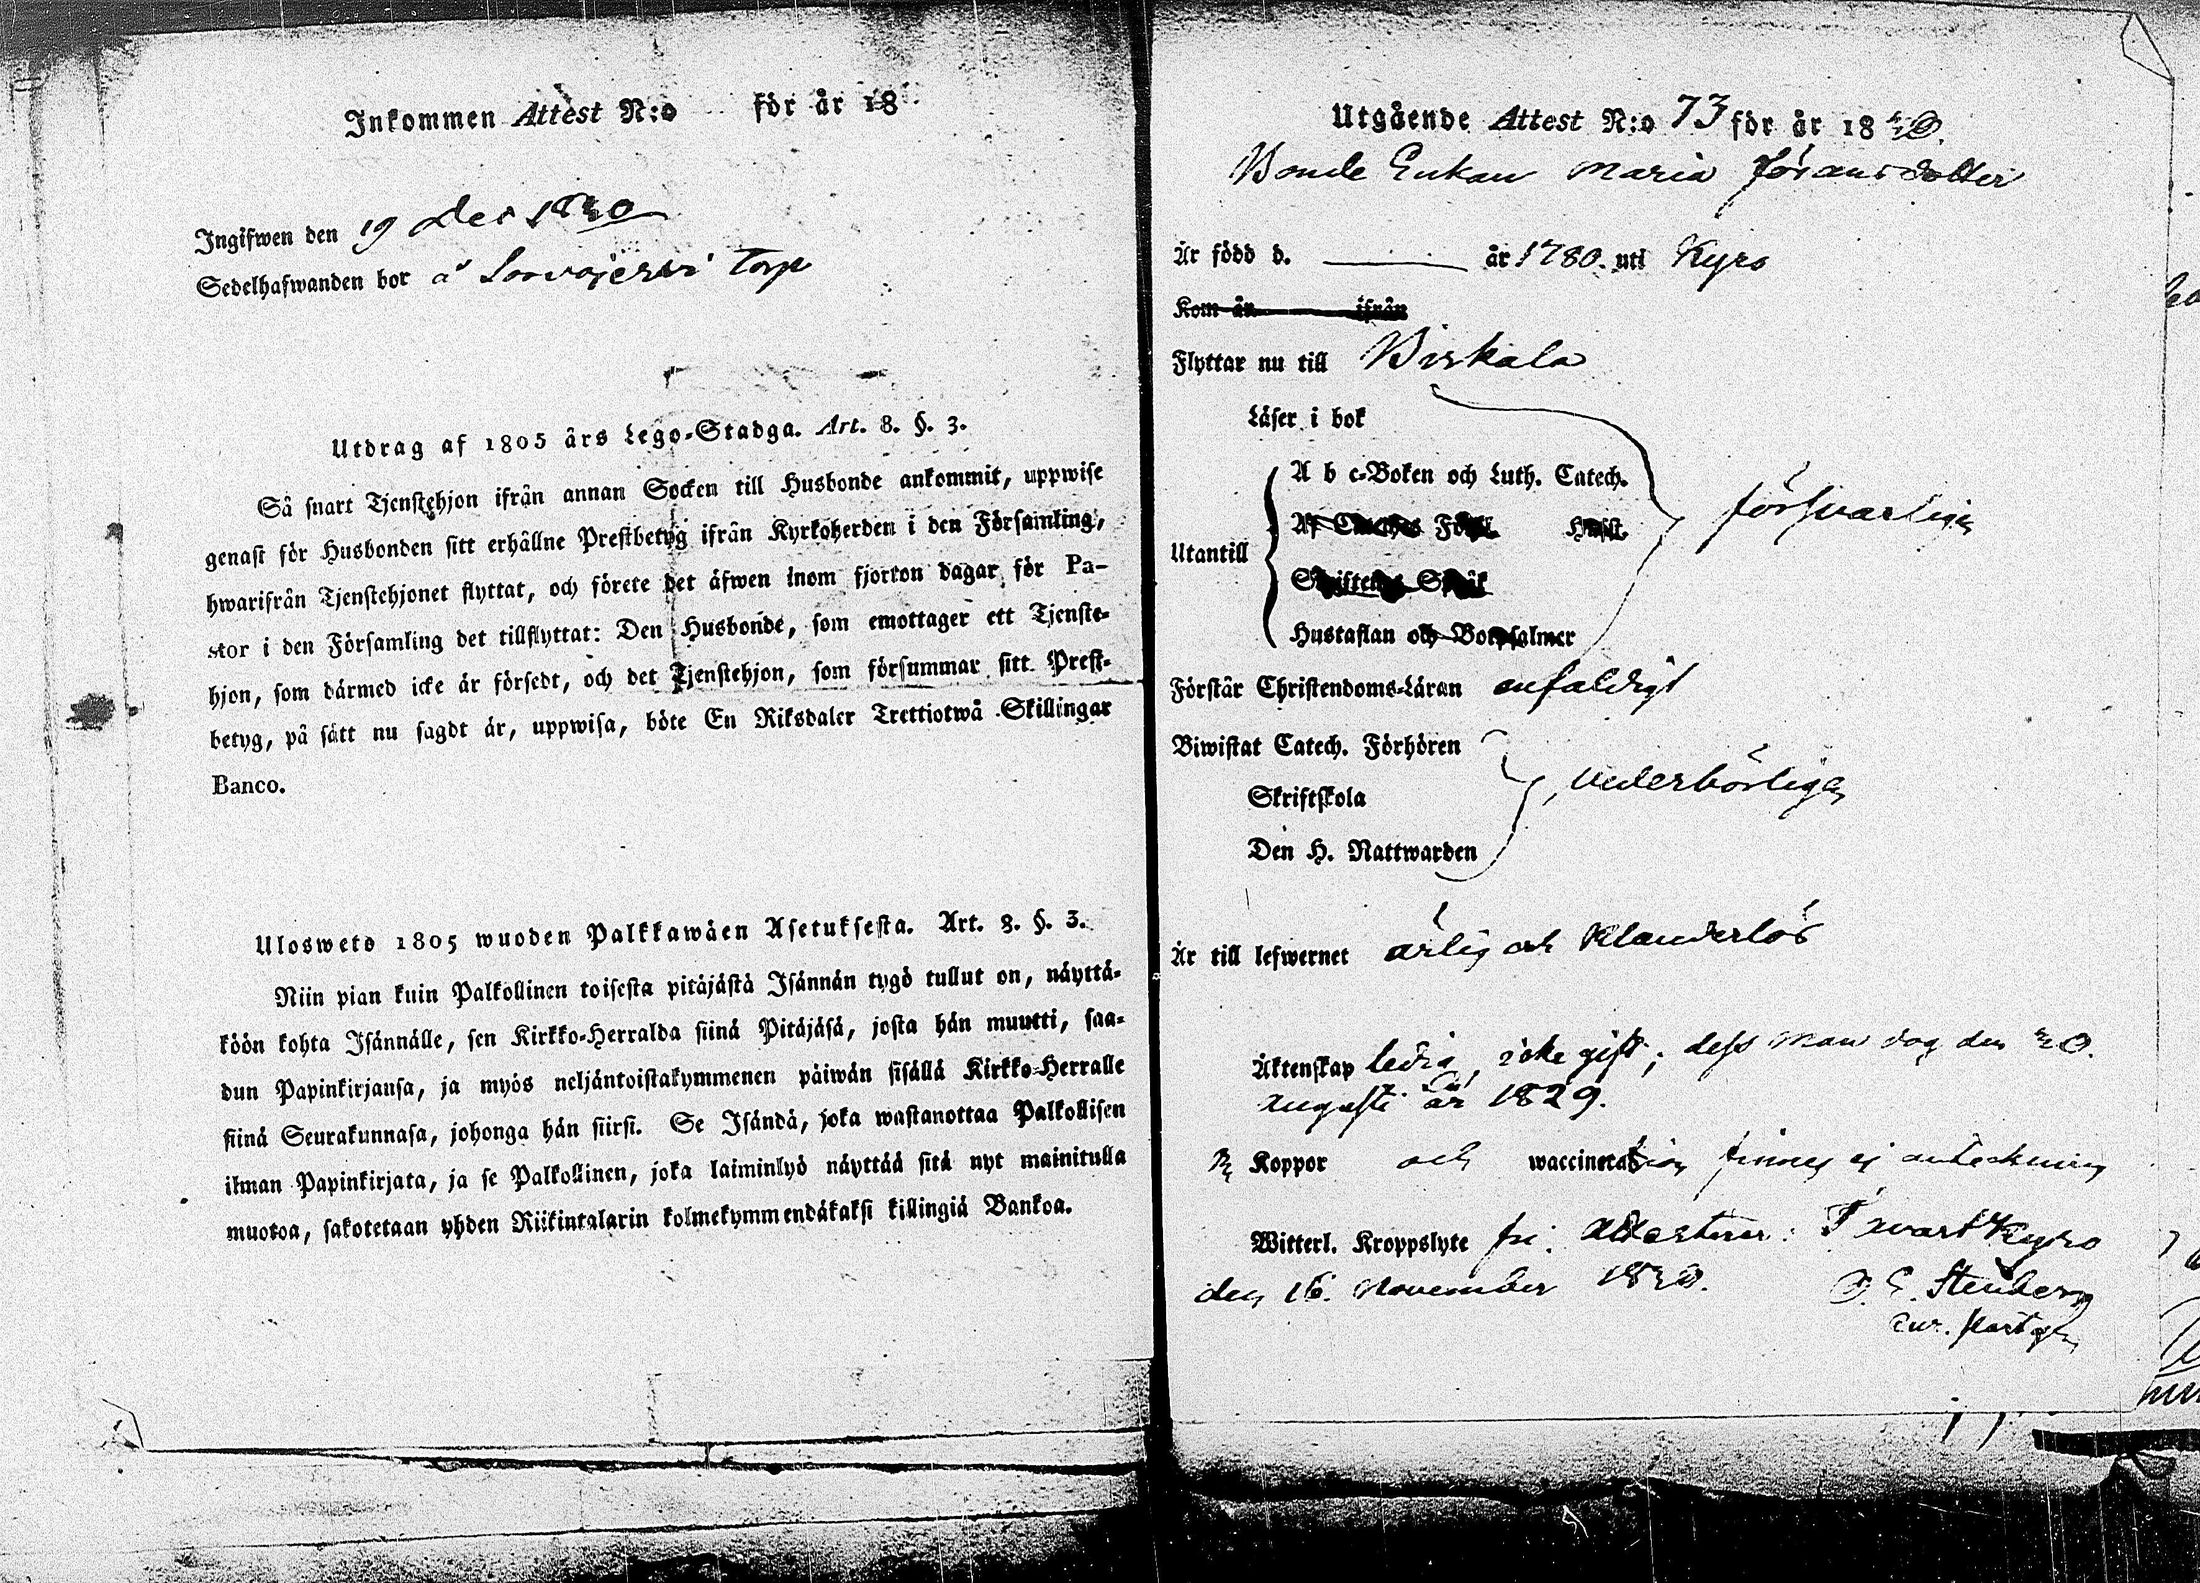 Inkommen Attest N:o för år 18
Ingifwen den 19 Dec 1830
Sedelhafwanden bor å Sorvajerwi Torp
Utdrag af 1805 års Lego-Stadga. Art. 8. §. 3.
Så snart Tjenstehjon ifrån annan Socken till Husbonde ankommit, uppwise
genast för Husbonden sitt erhållne Prestbetyg ifrån Kyrkoherden i den Församling,
hwarifrån Tjenstehjonet flyttat, och förete det äfwen inom fjorton dagar för Pa-
stor i den Församling det tillflyttat: Den Husbonde, som emottager ett Tjenste-
hjon, som dårmed icke år försedt, och det Tjenstehjon, som försummar sitt Prest-
betyg, på sått nu sagdt år, uppwisa, böte En Riksdaler Trettiotwå Skillingar
Banco.
Uloswetö 1805 wuoden Palkkawäen Asetuksesta. Art. 8. §. 3.
Niin pian kuin Palkollinen toisesta pitäjästä Isännän tygö tullut on, näyttä-
köön kohta Isännälle, sen Kirkko-Herralda siinä Pitäjäsä, josta hän muutti, saa-
dun Papinkirjansa, ja myös neljäntoistakymmenen päiwän sisällä Kirkko-Herralle
siinä Seurakunnasa, johonga hän siirsi. Se Isändä, joka wastanottaa Palkollisen
ilman Papinkirjata, ja se Palkollinen, joka laiminlyö näyttää sitä nyt mainitulla
muotoa, sakotetaan yhden Riikintalarin kolmekymmendäkaksi killingiä Bankoa.
Utgående Attest N:o 73 för år 1830.
Bonde Enkan Maria Jöransdotter
Är född d. år 1780. uti Kyro
Kom år ifrån
Flyttar nu till Birkala
Läser i bok
A b c-Boken och Luth. Catech. försvarligen
Utantill
Hustaflan och Botpsalmer
Förstår Christendoms-Läran enfaldigt
Biwistat Catech. Förhören
Skriftskola vederbörligen
Den H. Nattwarden
Är till lefwernet ärlig och klanderlös
Äktenskap ledig, icke gift; dess man dog den 20.
Augusti år 1829.
Koppor och waccination finnes ej anteckning
Witterl. Kroppslyte fri. Attesterar: Tavastkyro
den 16. November 1830. Stenberg